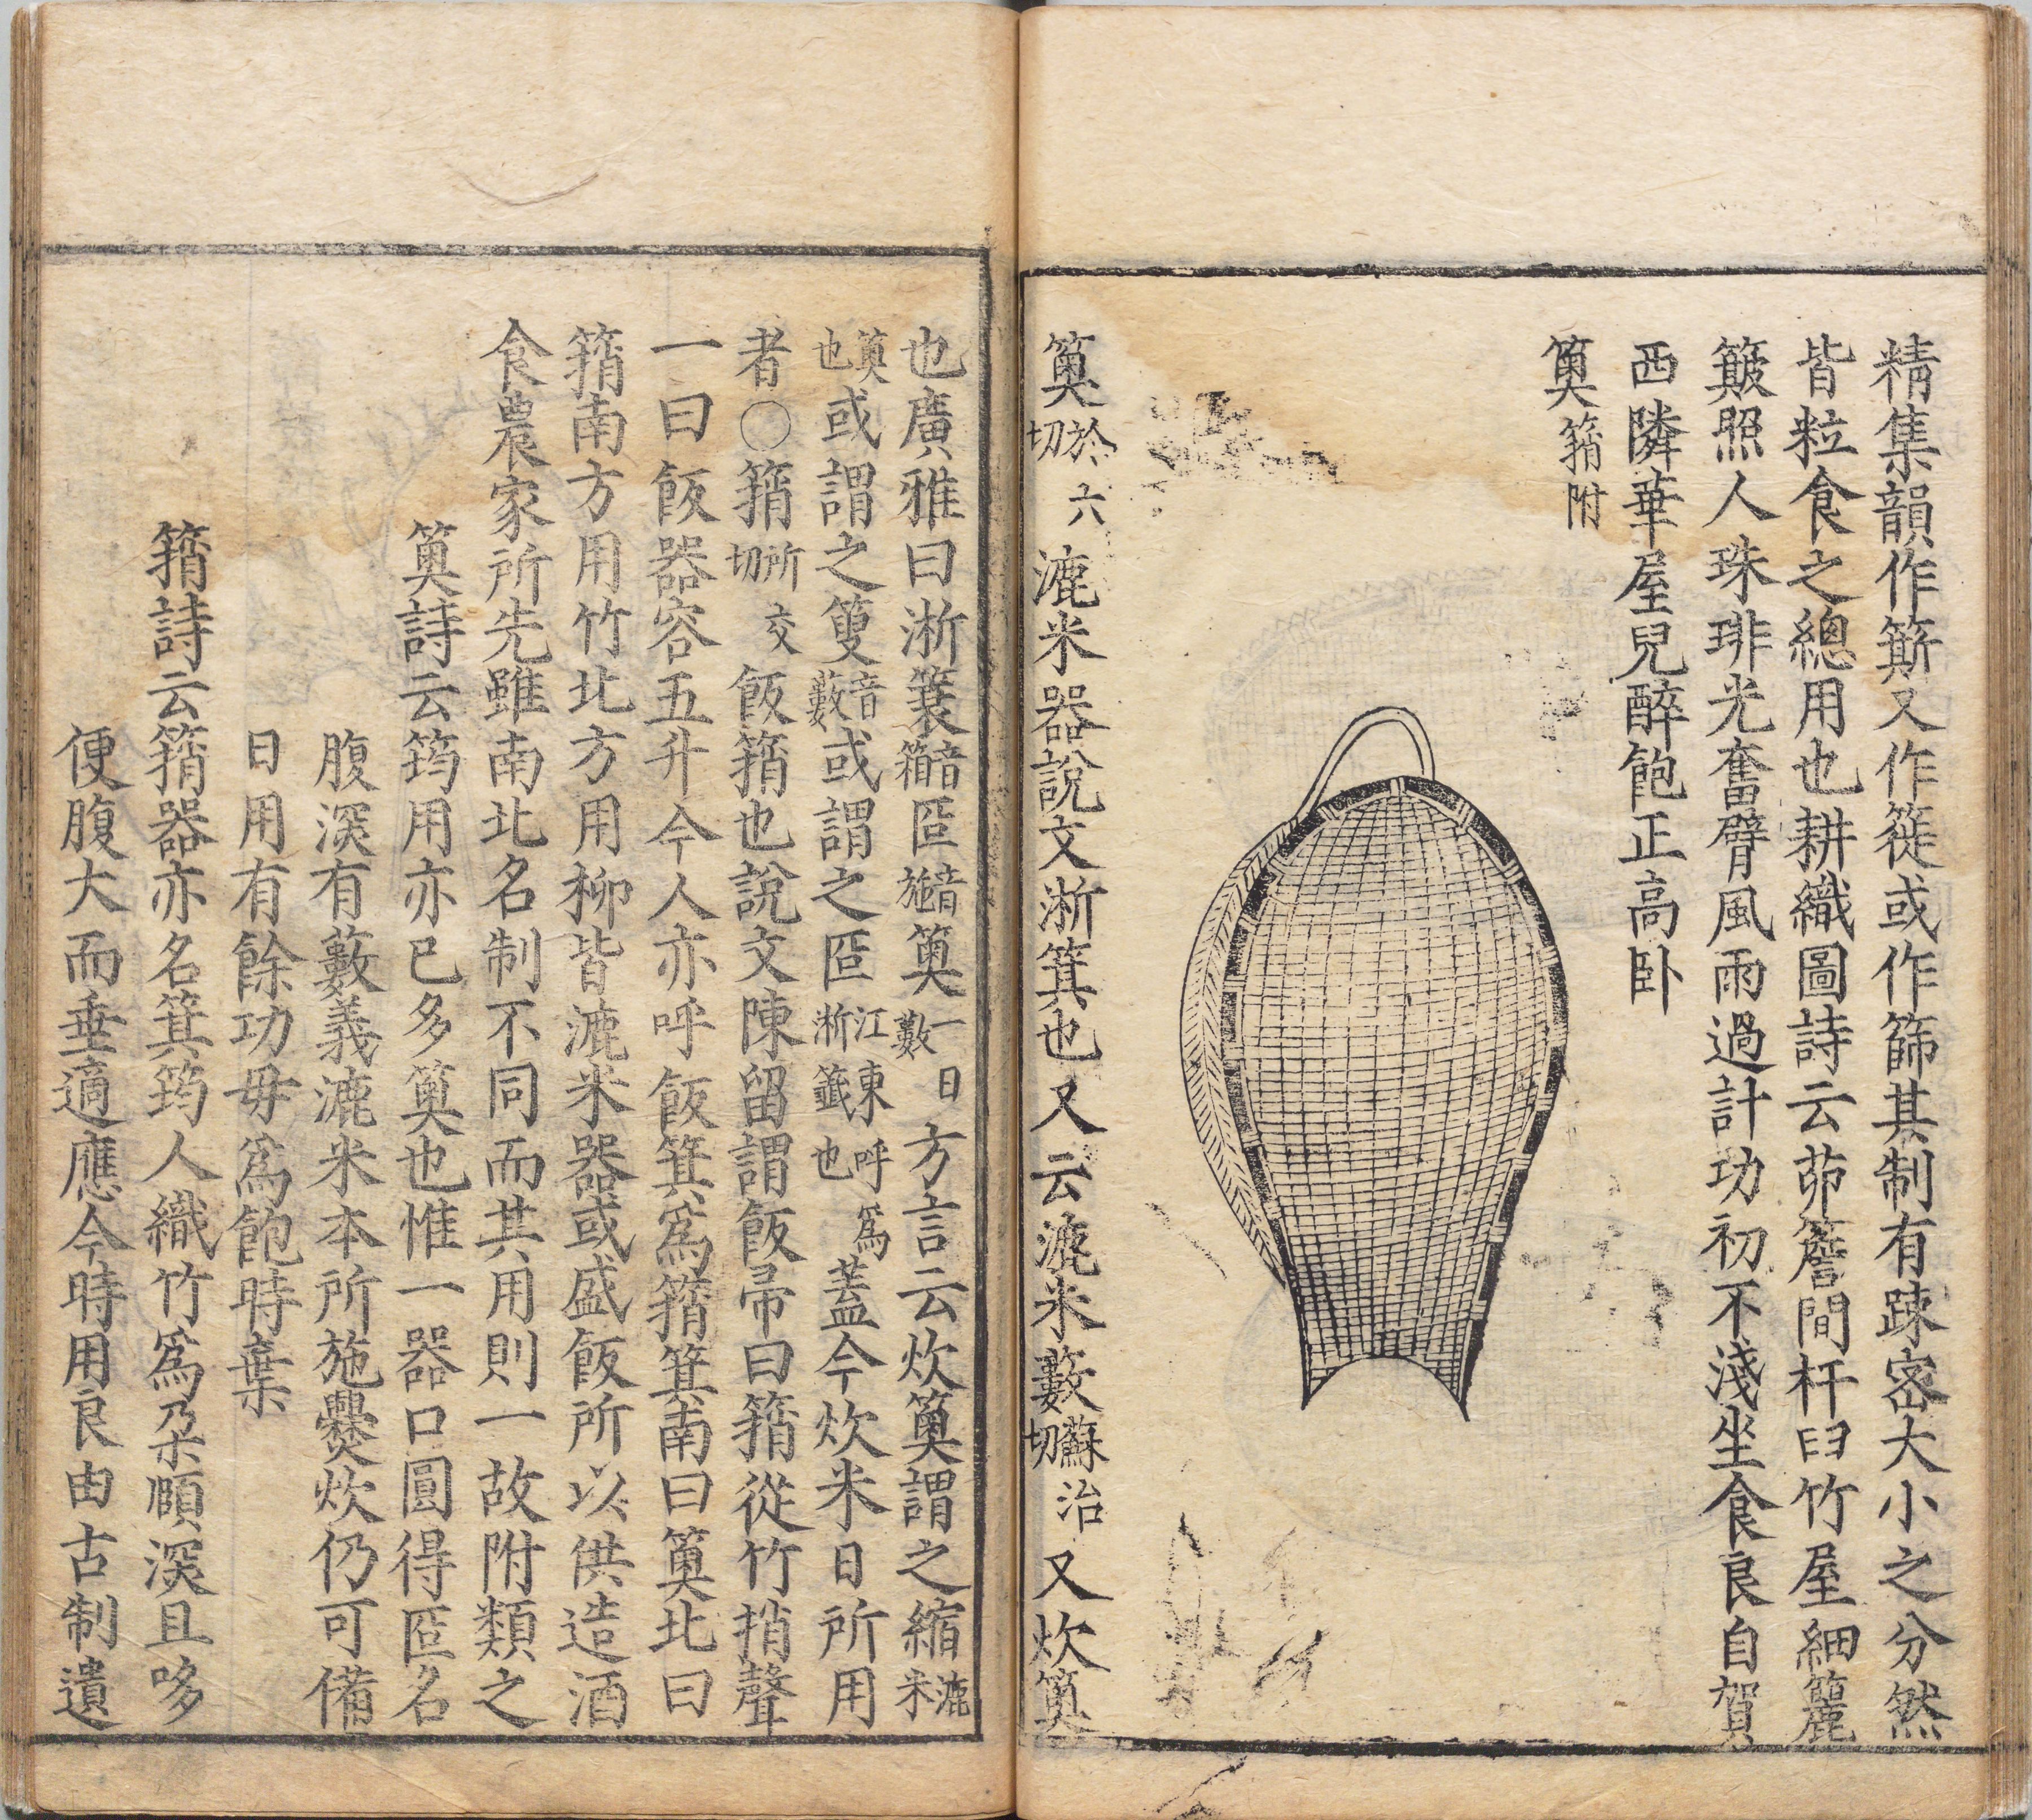 精集韻作簛又作簁或作篩其制有踈密大小之分然
皆粒食之總用也耕織圖詩云茆簷間杵臼竹屋細籭
簸照人珠琲光奮臂風雨過計功初不淺坐食良自賀
西隣華屋兒醉飽正高卧
䉛 䈰附
䉛於六切 漉米器說文淅箕也又云漉米籔蘇治切又炊䉛
也廣雅曰淅䉛音箱匠音旋䉛一曰籔方言云炊䉛謂之縮漉米
䉛也或謂之䉤音藪或謂之匠江東呼爲淅籤也蓋今炊米日所用
者〇䈰所交切飯䈰也說文陳留謂飯帚曰䈰從竹捎聲
一曰飯器容五升今人亦呼飯箕爲䈰箕南曰䉛北曰
䈰南方用竹北方用柳皆漉米器或盛飯所以供造酒
食農家所先雖南北名制不同而其用則一故附類之
䉛詩云筠用亦已多䉛也惟一器口圓得匠名
腹深有籔義漉米本所施爨炊仍可備
日用有餘功毋爲飽時棄
䈰詩云䈰器亦名箕筠人織竹爲朶頤深且哆
便腹大而垂適應今時用良由古制遺